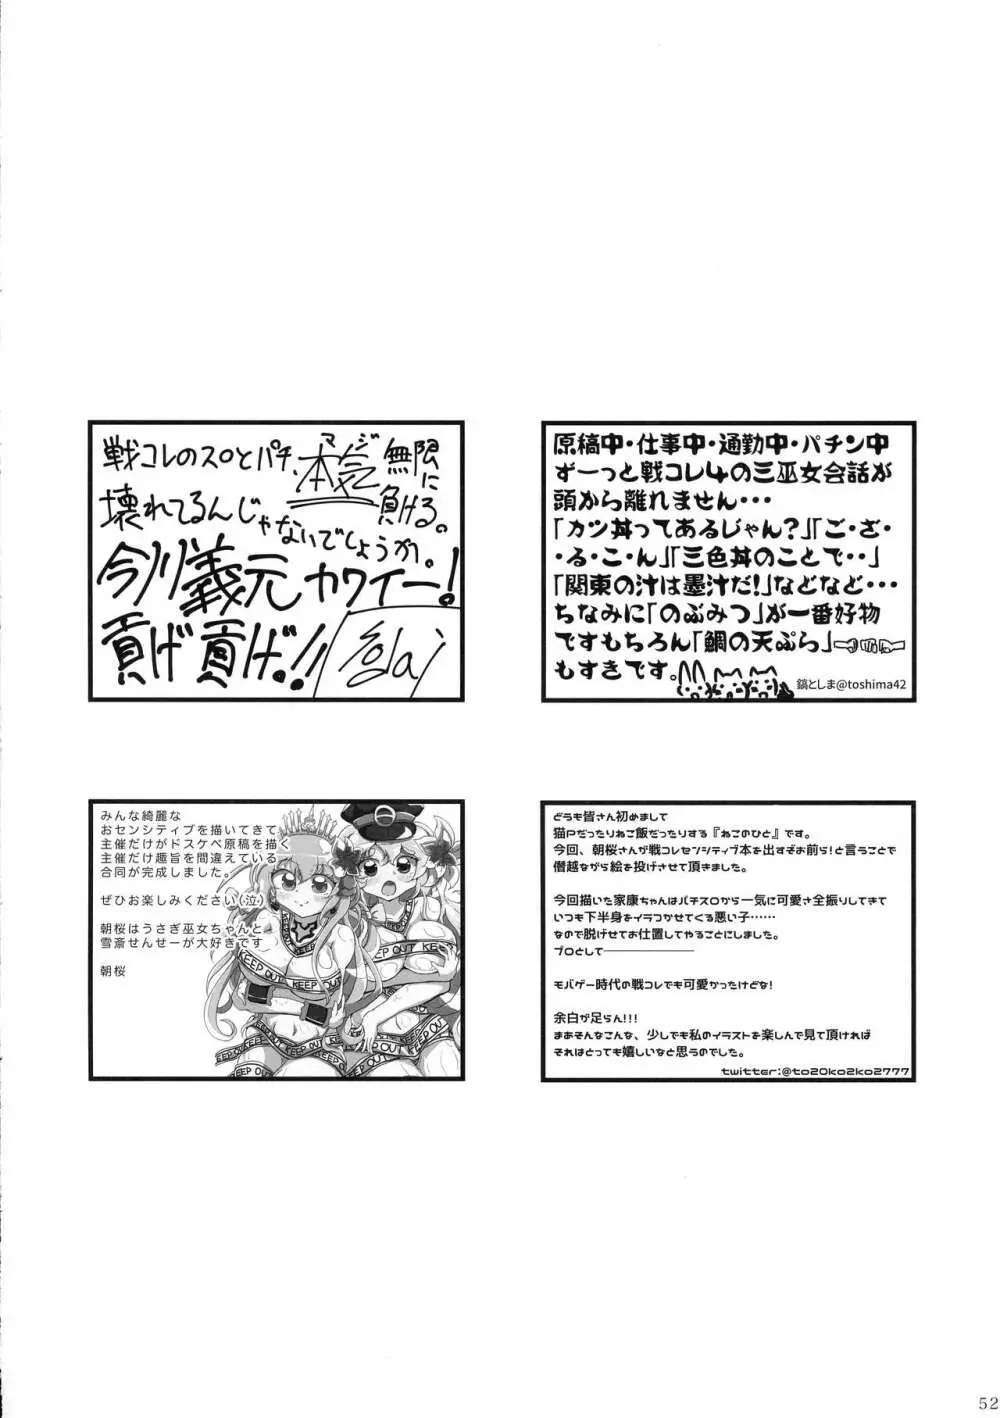 戦コレのスロとパチ、本気マジ無限に
壊れてるんじゃないでしょうか。負ける。
今川義元カワイー!
貢げ貢げ!!
原稿中・仕事中・通勤中・パチン中
ずーっと戦コレ4の三巫女会話が
頭から離れません・・・
「カツ丼ってあるじゃん?」「ご・ざ・
・る・こ・ん」「三色丼のことで・・」
「関東の汁は墨汁だ!」などなど・・・
ちなみに「のぶみつ」が一番好物
ですもちろん「鯛の天ぷら」
もすきです。
鎬としま@toshima42
みんな綺麗な
おセンシティブを描いてきて
主催だけがドスケベ原稿を描く
主催だけ趣旨を間違えている
合同が完成しました。
ぜひお楽しみください(泣)
朝桜はうさぎ巫女ちゃんと
雪斎せんせーが大好きです
朝桜
KEEP OUT KEEP OUT KEEP OUT
どうも皆さん初めまして
猫Pだったりねこ飯だったりする『ねこのひと』です。
今回、朝桜さんが戦コレセンシティブ本を出すぞお前ら!と言うことで
僭越ながら絵を投げさせて頂きました。
今回描いた家康ちゃんはパチスロから一気に可愛さ全振りしてきて
いつも下半身をイラつかせてくる悪い子……
なので脱げせてお仕置してやることにしました。
プロとして――――――
モバゲー時代の戦コレでも可愛かったけどな!
余白が足らん!!!
まあそんなこんな、少しでも私のイラストを楽しんで見て頂ければ
それはとっても嬉しいなと思うのでした。
twitter:@to20ko2ko2777
52